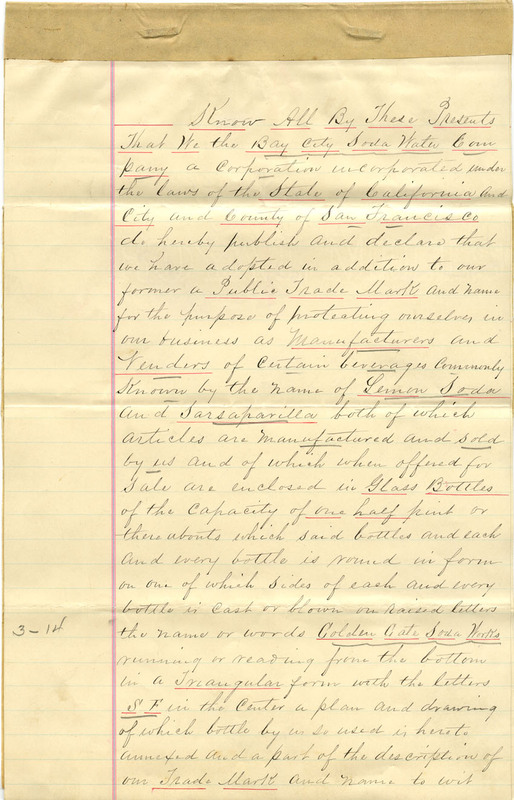 Know All By These Presents
That We the Bay City Soda Water Com
pany a corporation incorporated under
the laws of the State of California and
City and County of San Francisco
do hereby publish and declare that
we have adopted in addition to our
former a Public Trade Mark and name
for the purpose of protecting ourselves in
our business as Manufacturers and
Venders of certain beverages commonly
Known by the name of Lemon Soda
and Sarsaparilla both of which
articles are manufactured and sold
by us and of which when offered for
Sale are enclosed in Glass Bottles
of the capacity of one half pint or
thereabouts which said bottles and each
and every bottle is round in form
on one of which sides of each and every
bottle is cast or blown on raised letters
3-14
the name or words Golden Gate Soda Works
running or reading from the bottom
in a Triangular form with the letters
S F in the center a plan and drawing
of which bottle by us so used is hereto
annexed and a part of the description of
our Trade Mark and name to wit